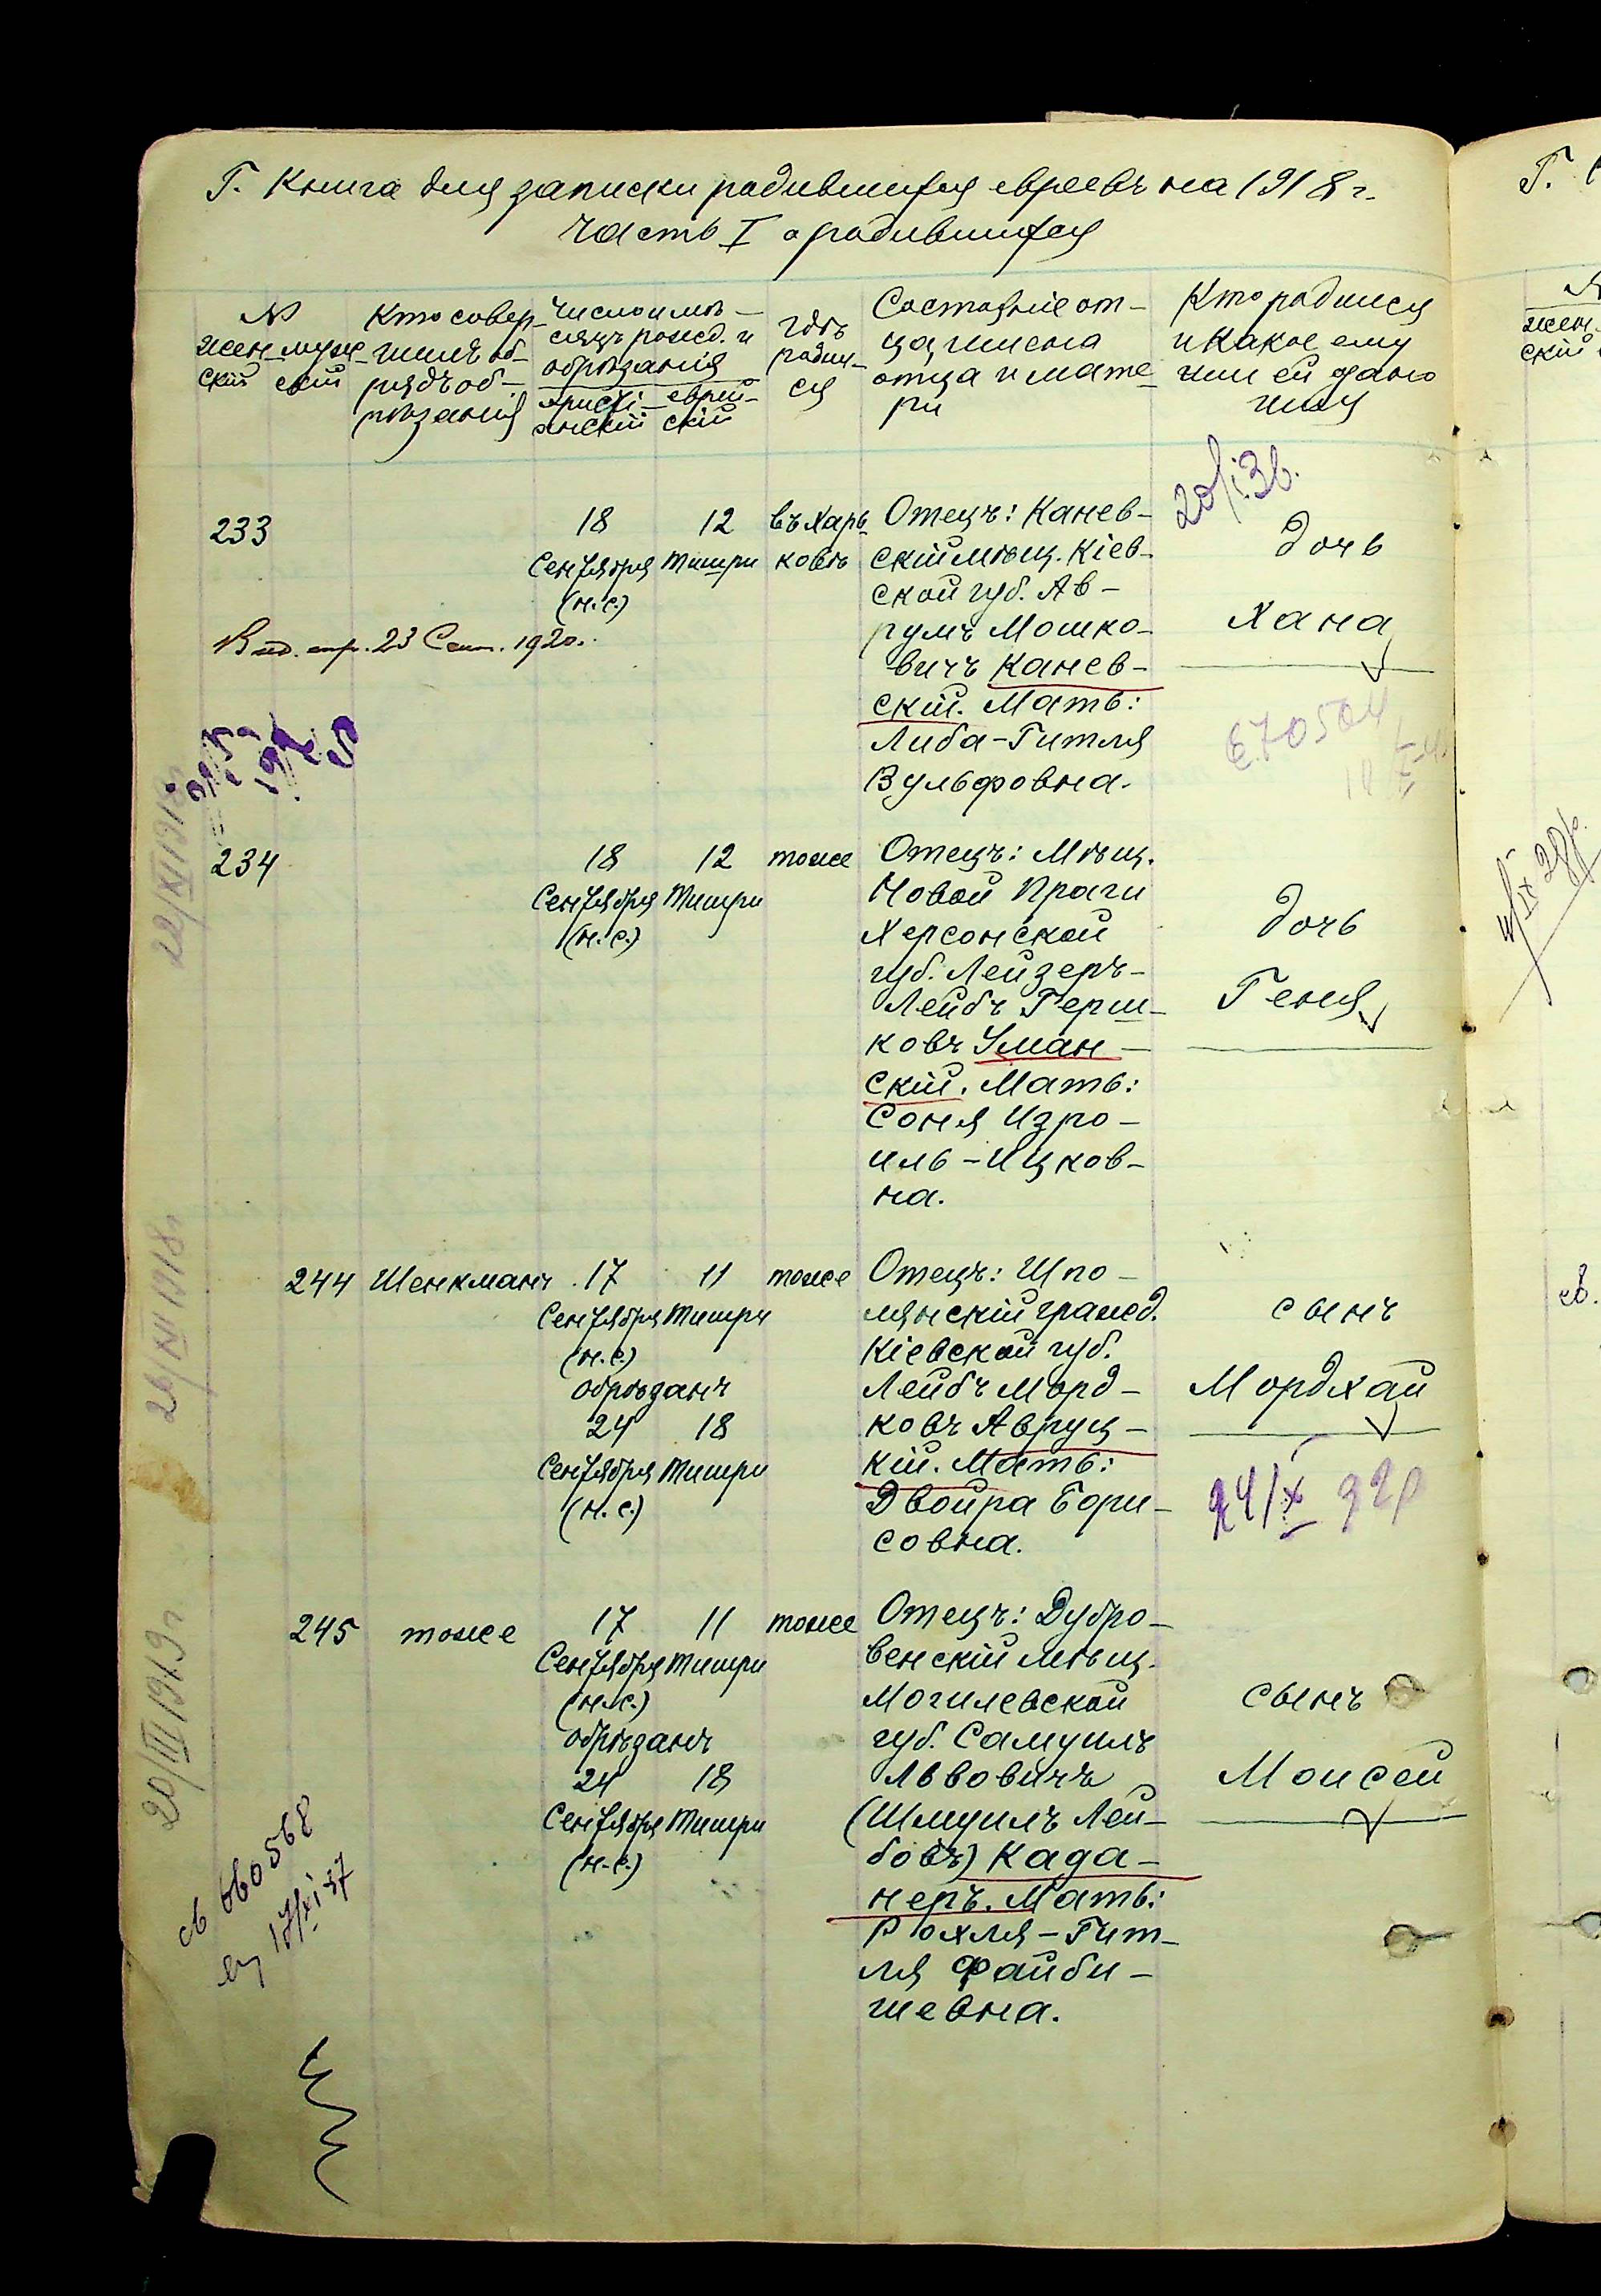 Г. Книга для записки родившихся евреевъ на 1918 г.
Часть I о родившихся
№
жен-
скій
муж-
скій
Кто совер-
шилъ об-
рядъ об-
рѣзанія
Число и мѣ-
сяцъ рожд. и
обрѣзанія
христі-
анскій
еврей-
скій
Гдѣ
родил-
ся
Состояніе от-
ца, имена
отца и мате-
ри
Кто родился
и какое ему
или ей дано
имя
233
18
Сентября
(н.с.)
12
Тишри
въ Харь-
ковѣ
Отецъ: Канев-
скій мѣщ. Кіев-
ской губ. Ав-
румъ Мошко-
вичъ Канев-
скій. Мать:
Либа-Гитля
Вульфовна.
20/I.36.
Дочь
Хана
23 Сент. 1920г.
Е70504
22/XI 1918г.
234
18
Сентября
(н.с.)
12
Тишри
тоже
Отецъ: Мѣщ.
Новой Праги
Херсонской
губ. Лейзеръ-
Лейбъ Герш-
ковъ Уман-
скій. Мать:
Соня Изро-
иль-Ицков-
на.
Дочь
Геня
26/XI 1918г.
244
Шенкманъ
17
Сентября
(н.с.)
обрѣзанъ
24
Сентября
(н.с.)
11
Тишри
18
Тишри
тоже
Отецъ: Шпо-
лянскій гражд.
Кіевской губ.
Лейбъ Морд-
ковъ Авруц-
кій. Мать:
Двойра Бори-
совна.
сынъ
Мордхай
24/X 92р
20/III 1919г.
245
тоже
17
Сентября
(н.с.)
обрѣзанъ
24
Сентября
(н.с.)
11
Тишри
18
Тишри
тоже
Отецъ: Дубро-
венскій мѣщ.
Могилевской
губ. Самуилъ
Львовичъ
(Шмуилъ Лей-
бовъ) Када-
неръ. Мать:
Рохля-Гит-
ля Файби-
шевна.
сынъ
Моисей
св 060568
17/XI 37